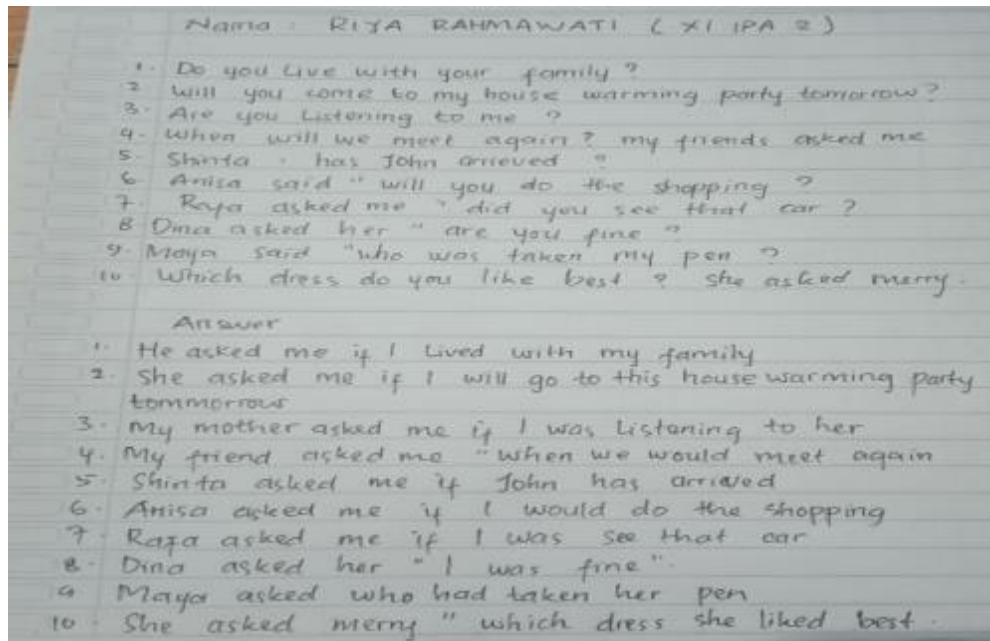 Nama : RIYA RAHMAWATI ( XI IPA 2 )
1. Do you Live with your family ?
2 will you come to my house warming party tomorrow ?
3. Are you Listening to me ?
4. When will we meet again ? my friends asked me
5. Shinta . has John arrieved "
6. Anisa said " will you do the shopping ?
7. Raya asked me " did you see that car ?
8 Dina asked her " are you fine "
9. Maya said "who was taken my pen ?
10 Which dress do you like best ? She asked merry.
Answer
1. He asked me if I Lived with my family
2. She asked me if I will go to this house warming party
tommorrow
3. My mother asked me if I was Listening to her
4. My friend asked me "when we would meet again
5. Shinta asked me if John has arrieved
6. Anisa asked me if I would do the shopping
7. Raya asked me if I was see that car
8. Dina asked her " I was fine ".
9 Maya asked who had taken her pen
10 . She asked merry " which dress she liked best .